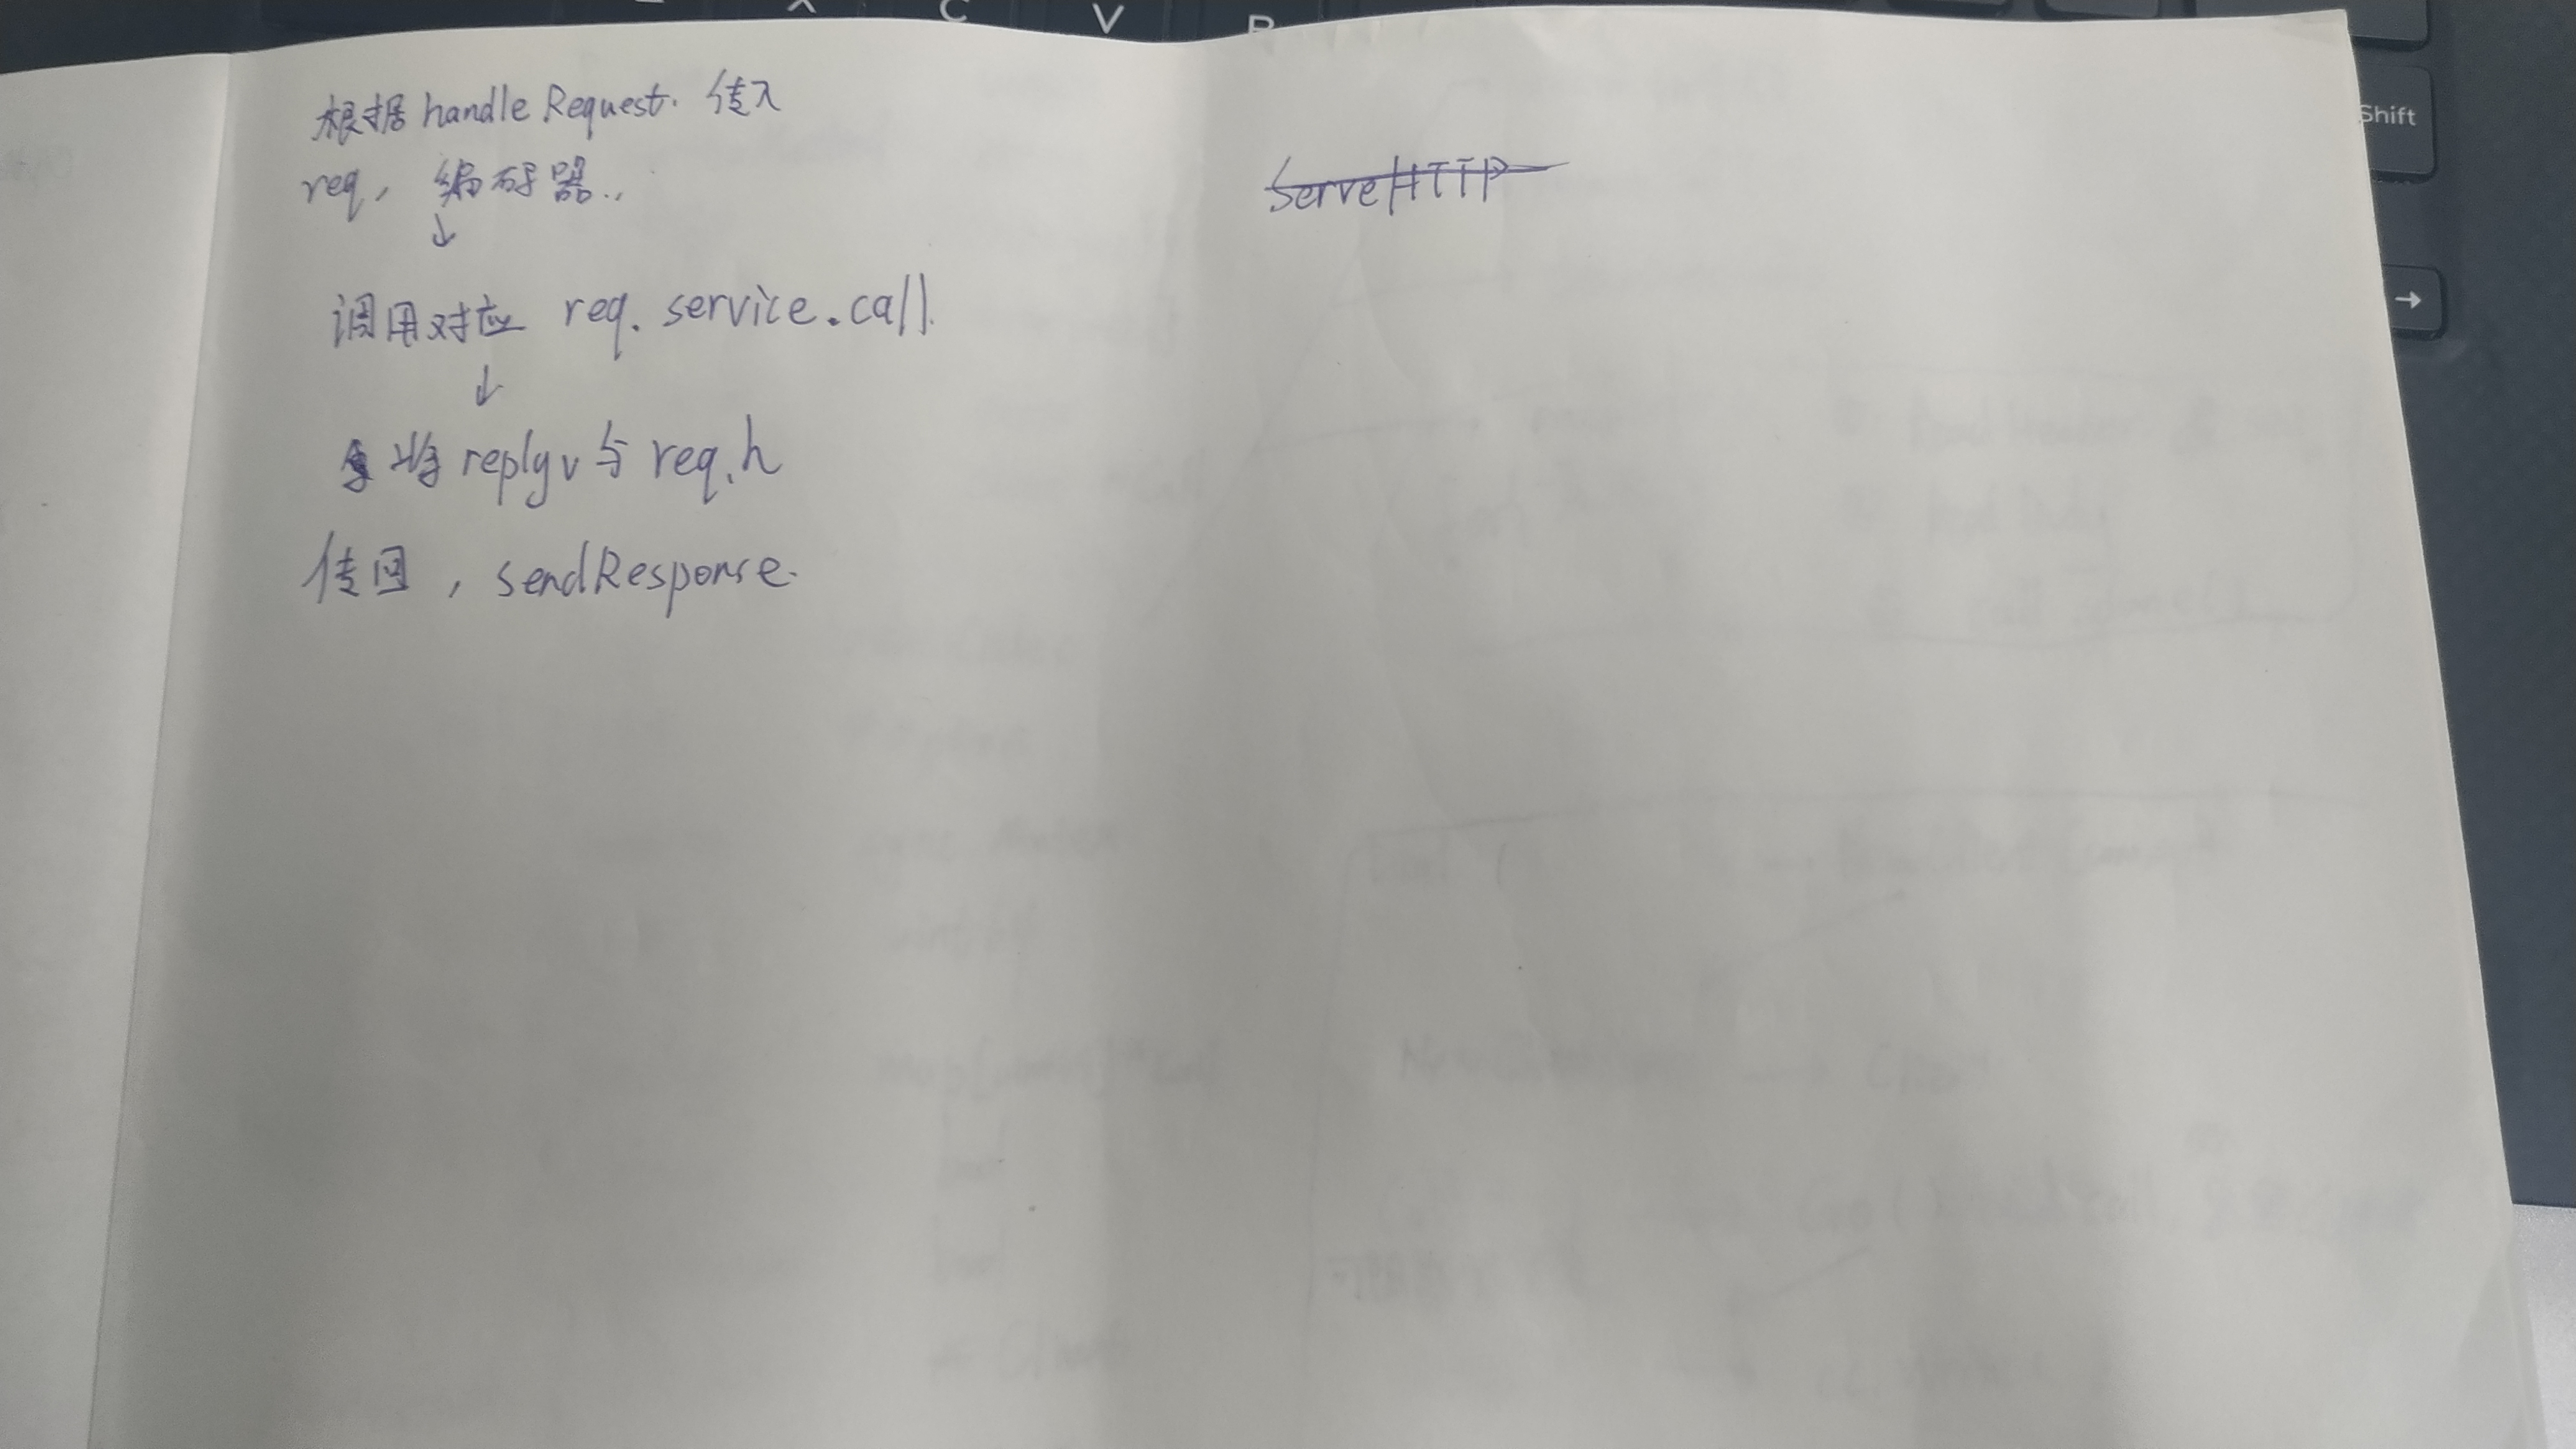 根据 handleRequest. 传入
req, 编码器..
↓
调用对应 req.service.call.
↓
将 replyv 与 req.h
传回, sendResponse.
ServeHTTP
C
V
Shift
→